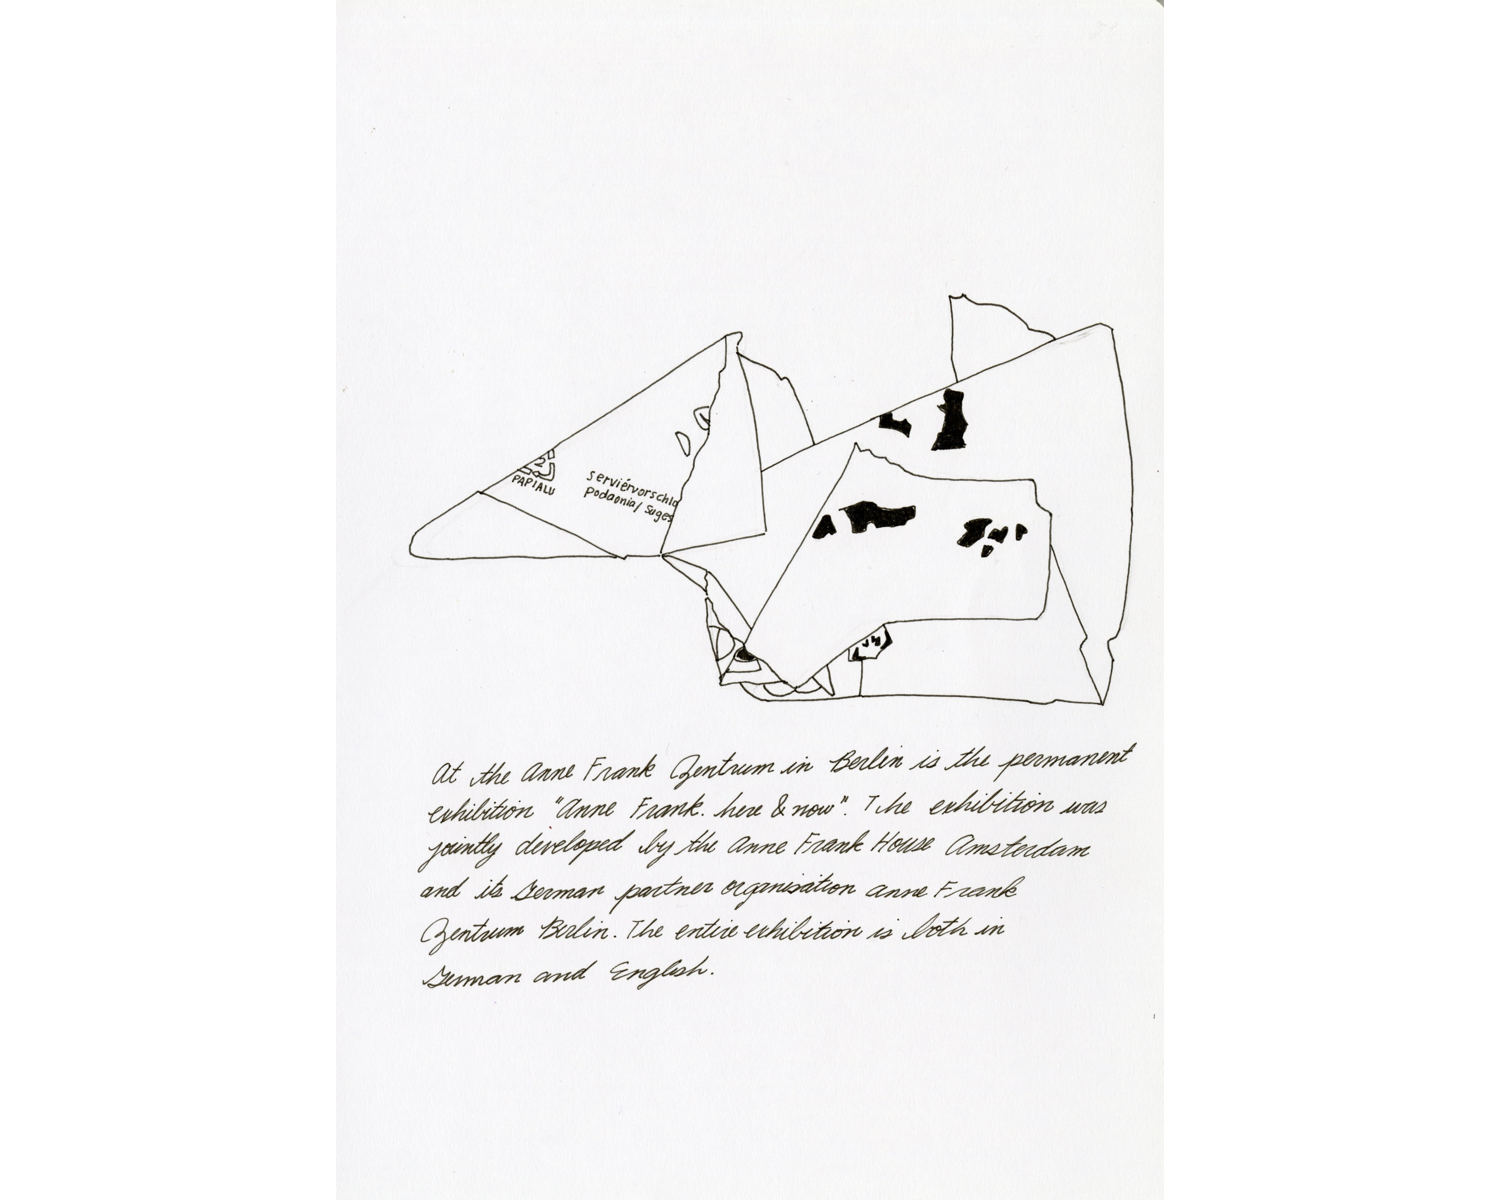 2
PAPIALU
serviérvorschla
Podaonia/ Suges
At the Anne Frank Zentrum in Berlin is the permanent
exhibition "Anne Frank. here & now". The exhibition was
jointly developed by the Anne Frank House Amsterdam
and its German partner organisation Anne Frank
Zentrum Berlin. The entire exhibition is both in
German and English.